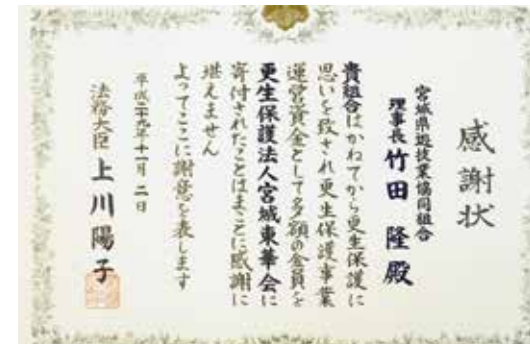 感謝状
宮城県遊技業協同組合
理事長 竹田 隆 殿
貴組合はかねてから更生保護に
思いを致され更生保護事業
運営資金として多額の金員を
更生保護法人宮城東華会に
寄付されたことはまことに感謝に
堪えません
よってここに謝意を表します
平成二十九年十一月二日
法務大臣 上川陽子